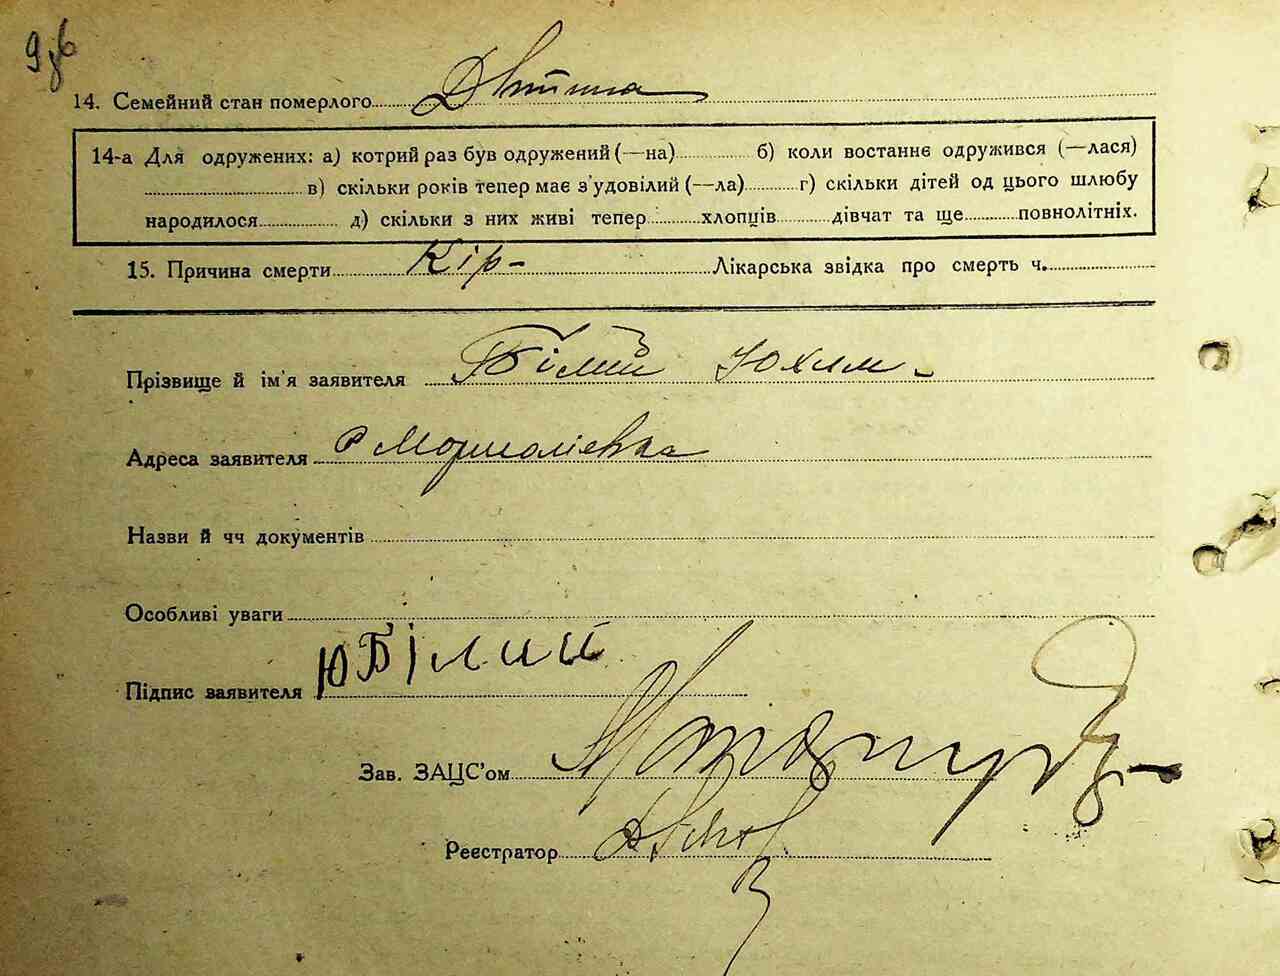 14. Семейний стан померлого Дитина
14-а Для одружених: а) котрий раз був одружений (—на) б) коли востаннє одружився (—лася)
в) скільки років тепер має з'удовілий (—ла) г) скільки дітей од цього шлюбу
народилося д) скільки з них живі тепер хлопців дівчат та ще повнолітніх.
15. Причина смерти Кір - Лікарська звідка про смерть ч.
Прізвище й ім'я заявителя Білий Юхим
Адреса заявителя
Назви й чч документів
Особливі уваги
Підпис заявителя Ю Білий
Зав. ЗАЦС'ом
Реєстратор